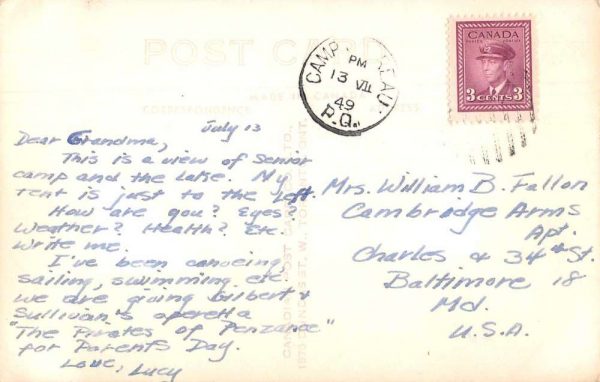 POST CARD
MADE IN CANADA
CORRESPONDENCE
ADDRESS
CAMP
PM
13 VII
49
P.Q.
CANADA
POSTES POSTAGE
3 CENTS 3
July 13
Dear Grandma,
This is a view of Senior
camp and the lake. My
tent is just to the left.
How are you? Eyes?
Weather? Health? Etc.
Write me.
I've been canoeing,
sailing, swimming etc.
We are giving Gilbert &
Sullivan's operetta
"The Pirates of Penzance"
for Parents Day.
Love, Lucy
Mrs. William B. Fallon
Cambridge Arms
Apt.
Charles & 34th St.
Baltimore 18
Md.
U.S.A.